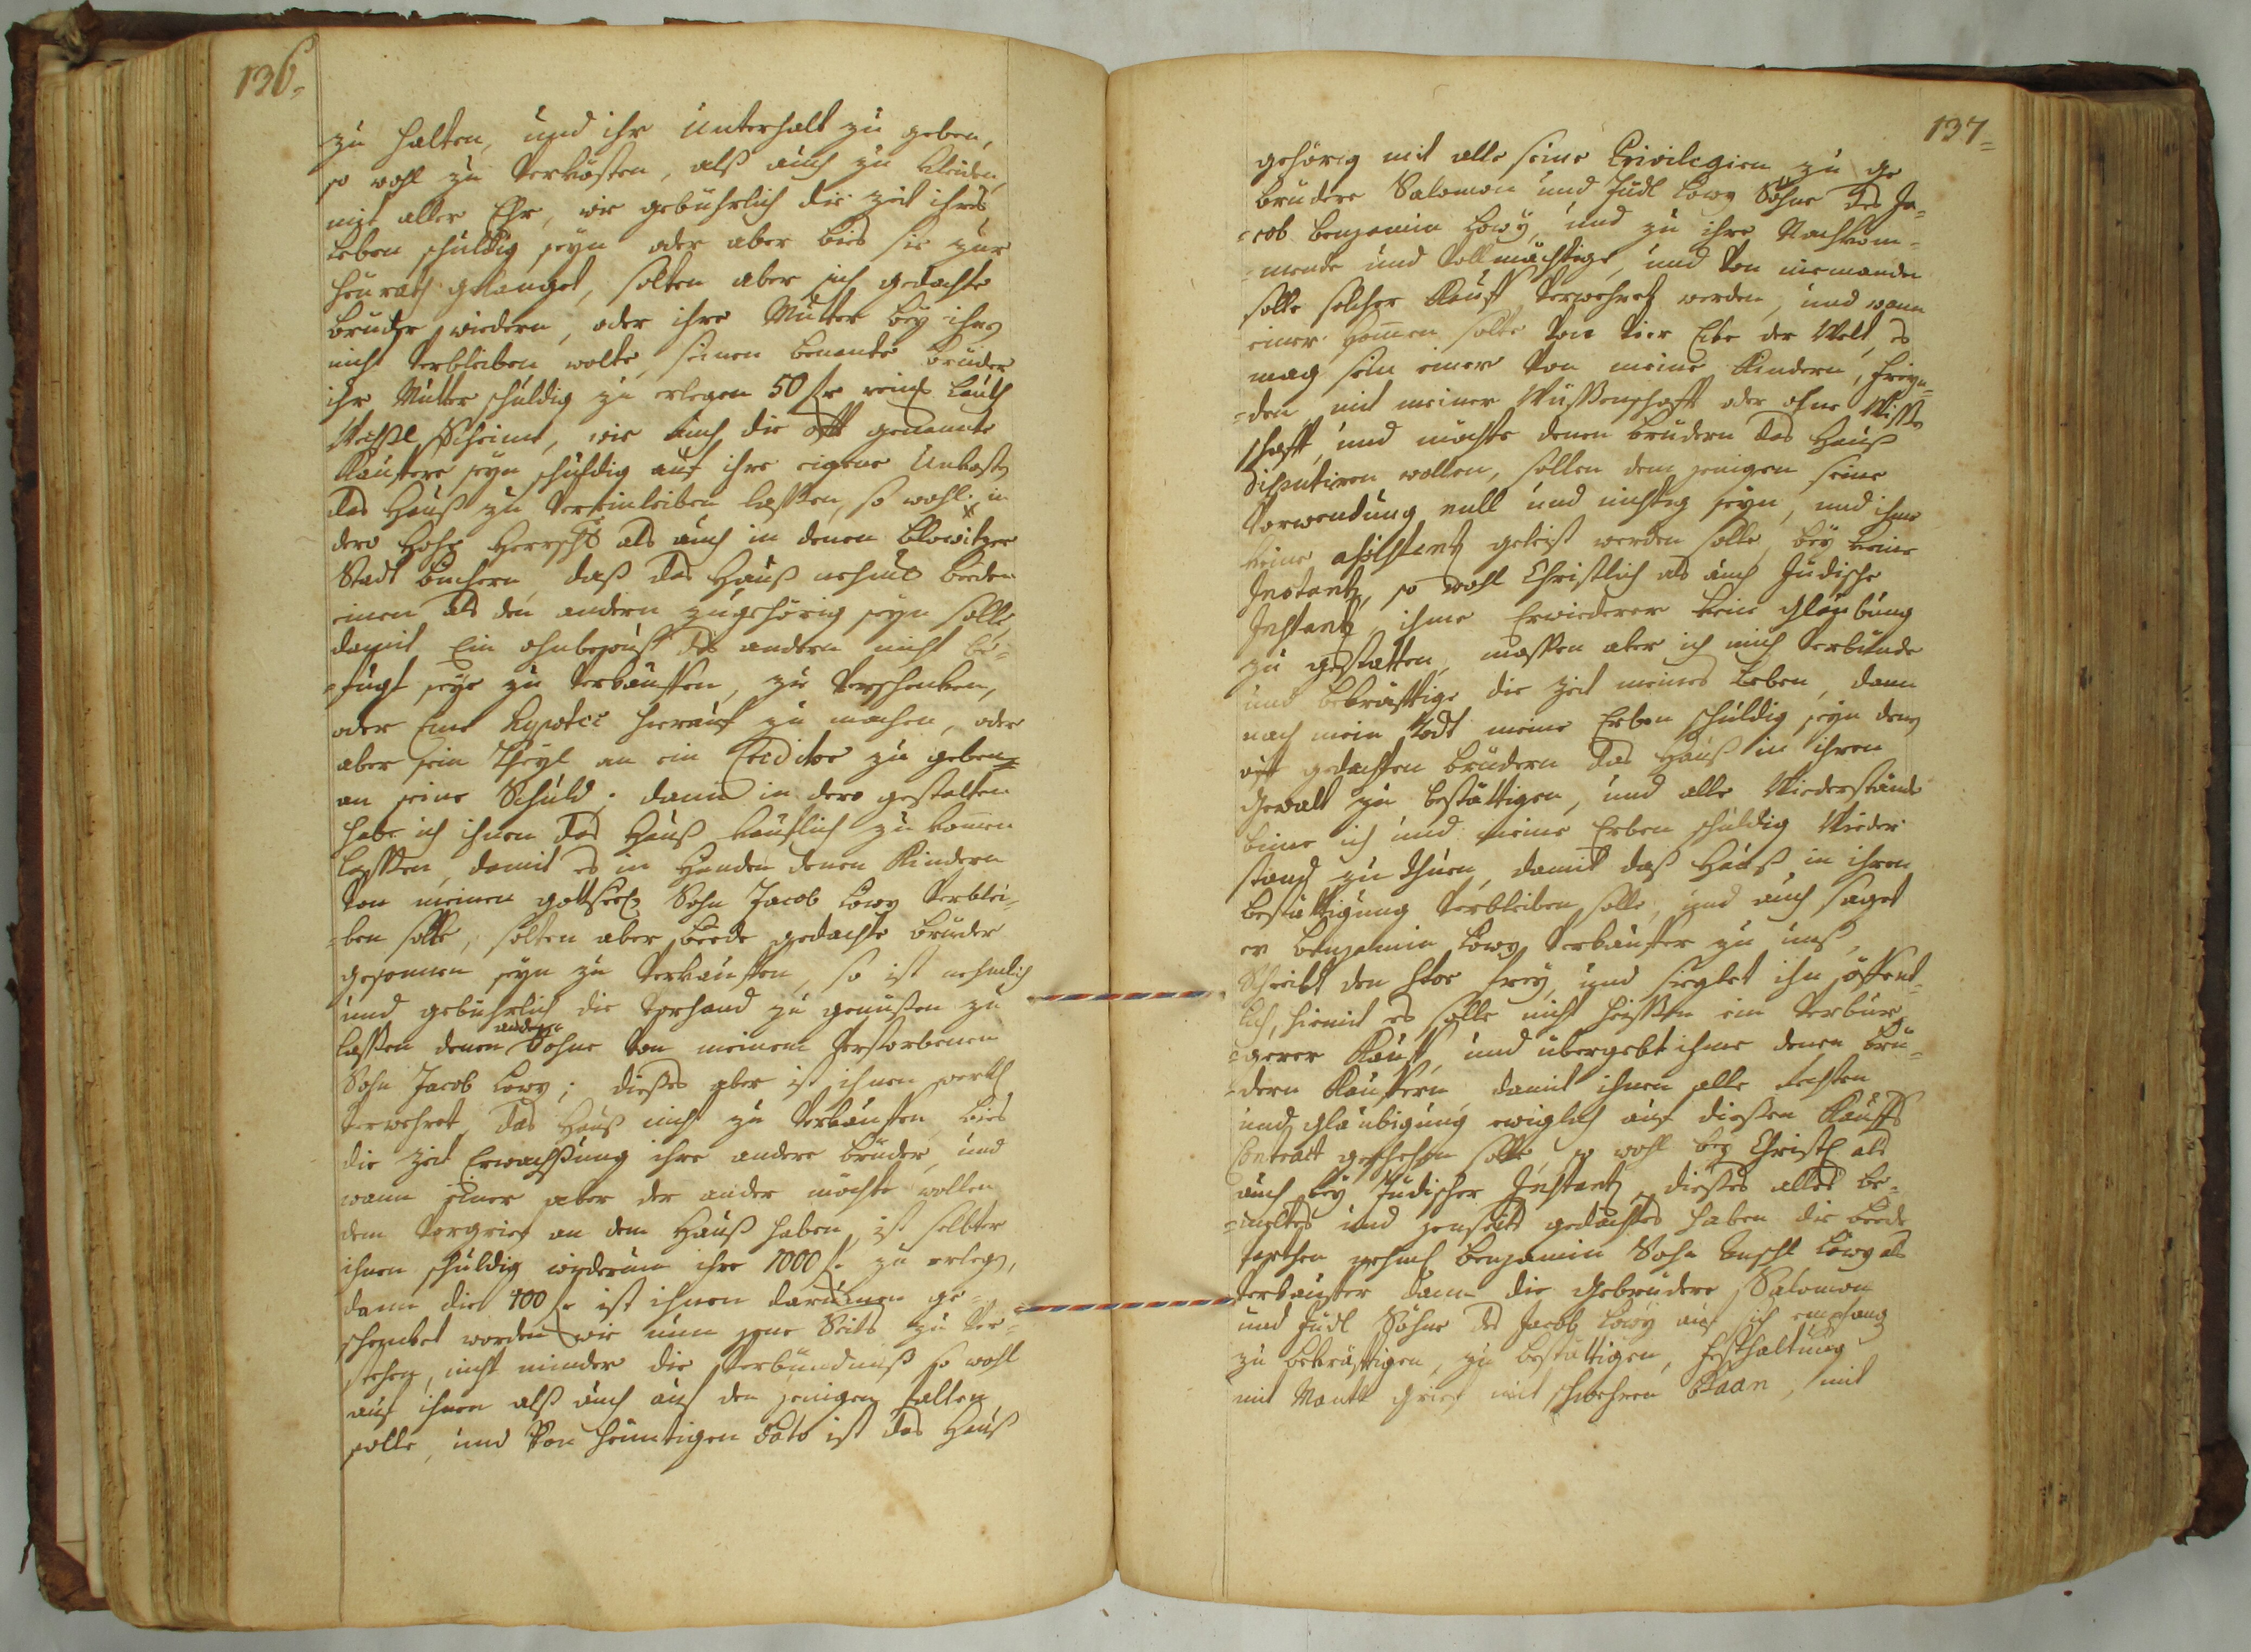 136.
zu halten, und ihr Unterhalt zu geben,
so wohl zu verkösten, alß auch zu kleiden,
mit aller Ehr, wie gebührlich die zeit ihres
Leben schuldig seyn oder aber bies sie zur
heurath gelanget, solten aber sich gedachte
Brüder wiedern, oder ihre Mutter bey ihnen
nicht verbleiben wolte, seinen benante Brüder
ihr Mutter schuldig zu erlegen 50 f reinl Lauth
Wechßl Scheine, wie auch die offt genannte
Kauffere seyn schuldig auf ihre eigene Unkosten
das Hauß zu vereinleiben lassen, so wohl in
dero Hohen Herrschft als auch in denen Blowitzer
Stadt Büchern, daß das Hauß nehmlich beeden
einen als den andern zugehörig seyn solle
damit Ein ohnbewust des andern nicht be-
=fugt seye zu verkauffen, zu verschenken,
oder Eine Hypotec hierauf zu machen, oder
aber sein Theyl an ein Creditor zu geben
an seine Schuld; dann in dero gestalten
habe ich ihnen das Hauß käuflich zu komen
lassen, damit es in Handen denen Kindern
von meinen gottseel Sohn Jacob Löwy verblei-
=ben solle, solten aber beede gedachte Brüder
gesonnen seyn zu verkauffen, so ist nehmlich
und gebührlich die Vorhand zu genüßen zu
lassen denen andere Söhne von meinem verstorbenen
Sohn Jacob Löwy; dießes aber ist ihnen
verwehret, das Hauß nicht zu verkauffen, bies
die zeit Erwachßung ihre andere Brüder, und
wann einer aber der ander möchte wollen
dem Vorgrief an dem Hauß haben, ist selbter
ihnen schuldig wiederum ihre 1000 f zu erlegen,
dann die 100 f ist ihnen darummen ge-
schenket worden wie nun jene Seits zu ver-
stehen, nicht minder die Verbündnuß so wohl
auf ihnen alß auch auf den jenigen fallen
solle, und von heuntigen dato ist das Hauß
137
gehörig mit alle seine Privilegien zu ge
Brüdere Salomon und Judl Löwy Söhne des Ja-
=cob Benjamin Löwy, und zu ihre Nachkom-
=mende und Vollmächtige, und von niemanden
solle solcher Kauff verwehret werden, und wann
einer komen solte von vier Ecke der Welt, es
mag sein einer von meine Kindern, freyn-
=den mit meiner Wüßenschaft oder ohne Wissen
schafft, und möchte denen Brüdern das Hauß
disputiren wollen, sollen dem jenigen seine
Vorwendung null und nichtig seyn, und ihme
keine assistentz geleist werden solle, bey keine
Instantz, so wohl Christlich als auch Jüdische
Instantz, ihme Erwiederer kein Glaubung
zu gestatten, massen aber ich mich verbünde
und bekräfftige die zeit meines Leben, dann
nach mein Todt meine Erben schuldig seyn denen
offt gedachten Brüdern das Hauß in ihren
Gewalt zu bestättigen, und alle Wiederstände
binne ich und meine Erben schuldig Wieder
stand zu thuen, damit daß Hauß in ihren
bestättigung verbleiben solle, und auch saget
er Benjamin Löwy Verkauffer zu unß,
Schreibt den frey, und sieglet ihn öffent-
lich, hiemit es solle nicht heissen ein verbor-
=gener Kauff, und übergebt ihme denen Brü-
=dern Kauffern, damit ihnen alle rechten
und Glaubigung ewiglich auf dießen Kauffs
Contract geschehen solle, so wohl bey Christl als
auch bey Jüdischer Instantz, dießes alles be-
=meltes und jenseits gedachtes haben die beede
parthen nehml Benjamin Sohn Anschl Löwy als
Verkauffer dann die Gebrüdere Salomon
und Judl Söhne des Jacob Löwy auf sich empfang
zu bekräfftigen, zu bestättigen, festhaltung
mit Mantl Grief mit schwehren Baan, mit